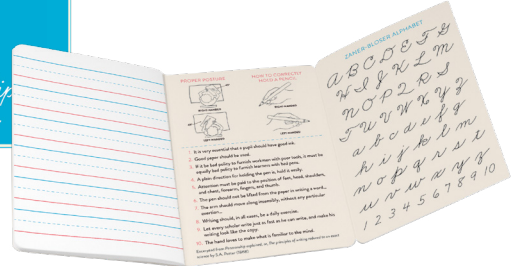 ip
PROPER POSTURE
HOW TO CORRECTLY
HOLD A PENCIL
RIGHT-HANDED
RIGHT-HANDED
LEFT-HANDED
LEFT-HANDED
1. It is very essential that a pupil should have good ink.
2. Good paper should be used.
3. If it be bad policy to furnish workmen with poor tools, it must be
equally bad policy to furnish learners with bad pens.
4. A plain direction for holding the pen is, hold it easily.
5. Attention must be paid to the position of feet, hand, shoulders,
and chest, forearm, fingers, and thumb.
6. The pen should not be lifted from the paper in writing a word...
7. The arm should move along insensibly, without any particular
exertion...
8. Writing should, in all cases, be a daily exercise.
9. Let every scholar write just as fast as he can write, and make his
writing look like the copy.
10. The hand loves to make what is familiar to the mind.
ZANER-BLOSER ALPHABET
A B C D E F G
H I J K L M
N O P Q R S
T U V W X Y Z
a b c d e f g
h i j k l m
n o p q r s t
u v w x y z
1 2 3 4 5 6 7 8 9 10